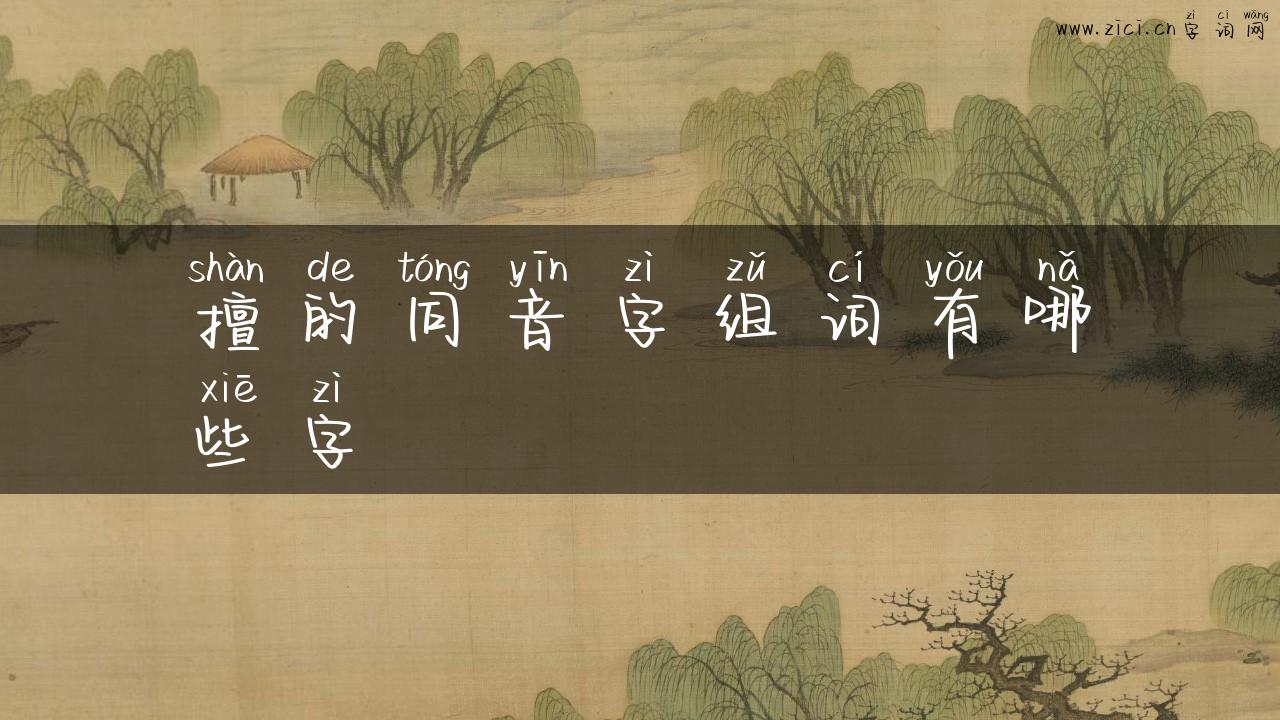 zì cí wǎng
www.zici.cn 字词网
shàn de tóng yīn zì zǔ cí yǒu nǎ
擅的同音字组词有哪
xiē zì
些字